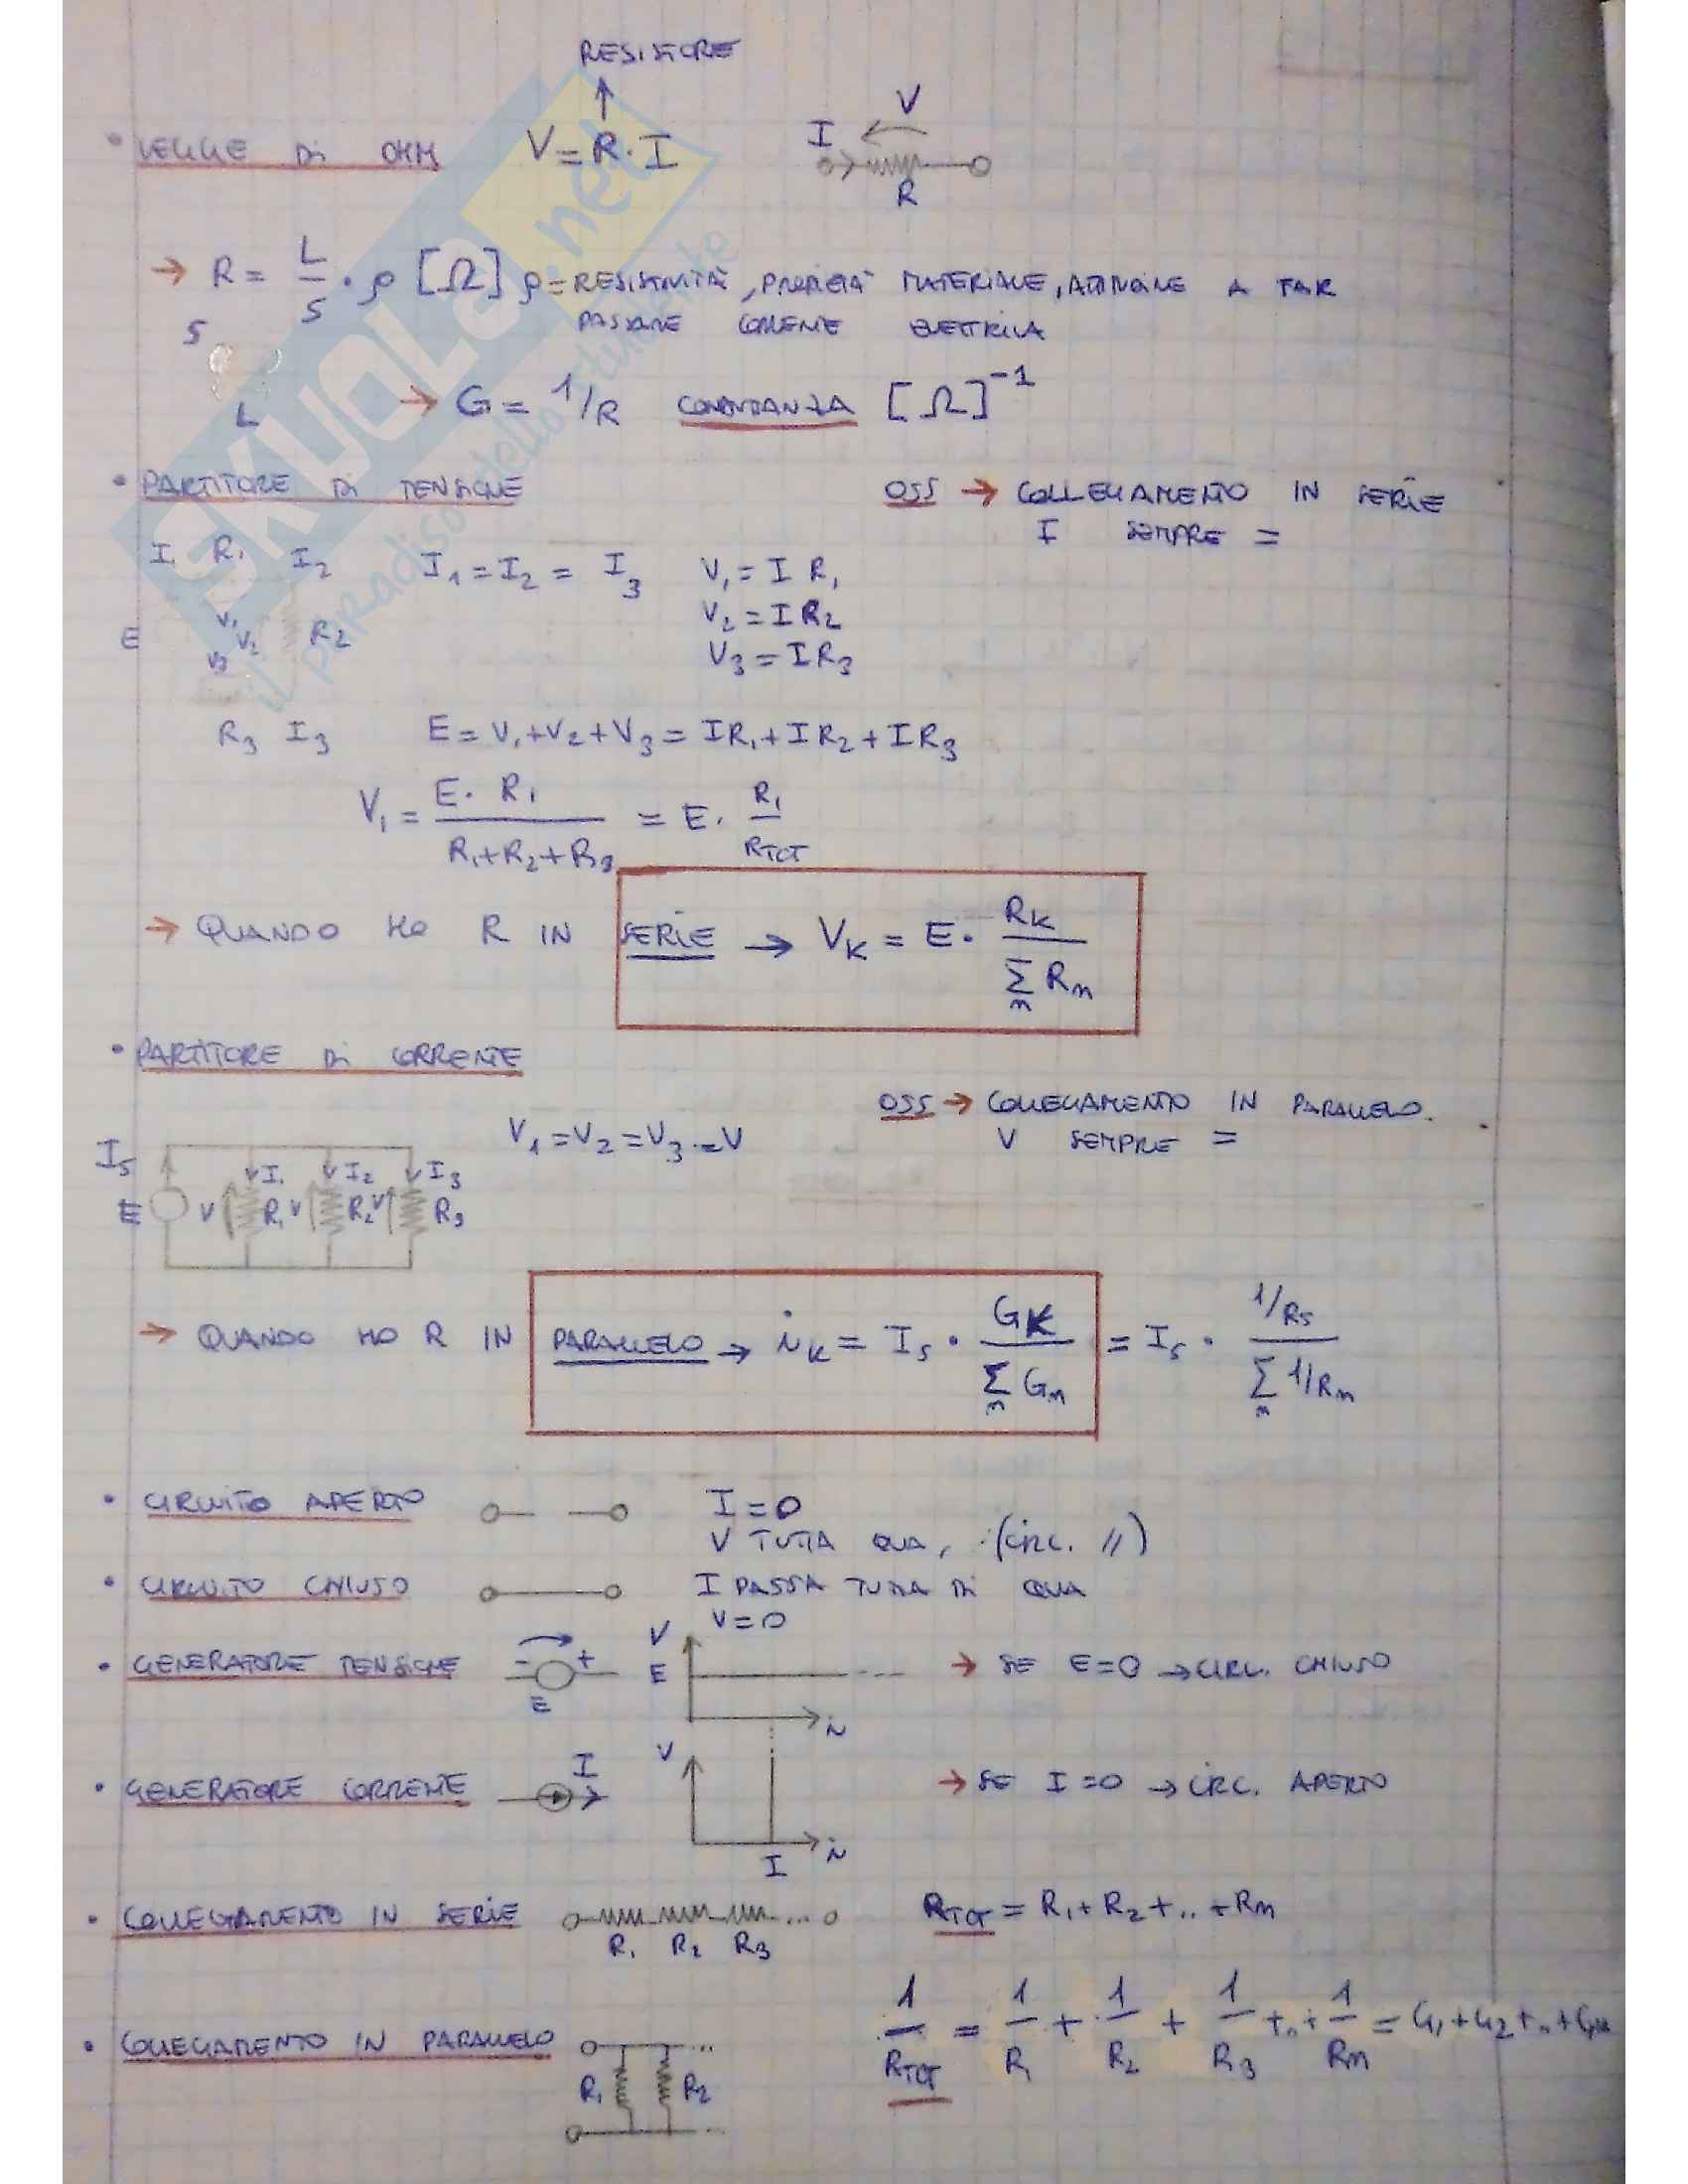 RESISTORE
• LEGGE Di OHM V = R · I I V R
→ R = L/S · ρ [Ω] ρ = RESISTIVITÀ, PROPRIETÀ MATERIALE, ATTITUDINE A FAR
S PASSARE CORRENTE ELETTRICA
L → G = 1/R CONDUTTANZA [Ω]⁻¹
• PARTITORE Di TENSIONE OSS → COLLEGAMENTO IN SERIE
I SEMPRE =
I₁ R₁ I₂ I₁ = I₂ = I₃ V₁ = I R₁
V₂ = I R₂
E V₁ V₂ V₃ R₂ V₃ = I R₃
R₃ I₃ E = V₁ + V₂ + V₃ = IR₁ + IR₂ + IR₃
V₁ = E · R₁ / R₁+R₂+R₃ = E · R₁/RTOT
→ QUANDO HO R IN SERIE → VK = E · RK / Σn Rn
• PARTITORE Di CORRENTE
OSS → COLLEGAMENTO IN PARALLELO.
V₁ = V₂ = V₃ = V V SEMPRE =
IS I₁ I₂ I₃
E V R₁ V R₂ V R₃
→ QUANDO HO R IN PARALLELO → iK = IS · GK / Σn Gn = IS · 1/RS / Σn 1/Rn
• CIRCUITO APERTO I = 0
V TUTTA QUA, (CIRC. //)
• CIRCUITO CHIUSO I PASSA TUTTA DI QUA
V = 0
• GENERATORE TENSIONE - + E V E i → SE E = 0 → CIRC. CHIUSO
• GENERATORE CORRENTE I V I i → SE I = 0 → CIRC. APERTO
• COLLEGAMENTO IN SERIE R₁ R₂ R₃ ... RTOT = R₁ + R₂ + .. + Rn
• COLLEGAMENTO IN PARALLELO R₁ R₂ ... 1/RTOT = 1/R₁ + 1/R₂ + 1/R₃ + .. + 1/Rn = G₁ + G₂ + .. + Gn
SKUOLA.net
il paradiso dello studente